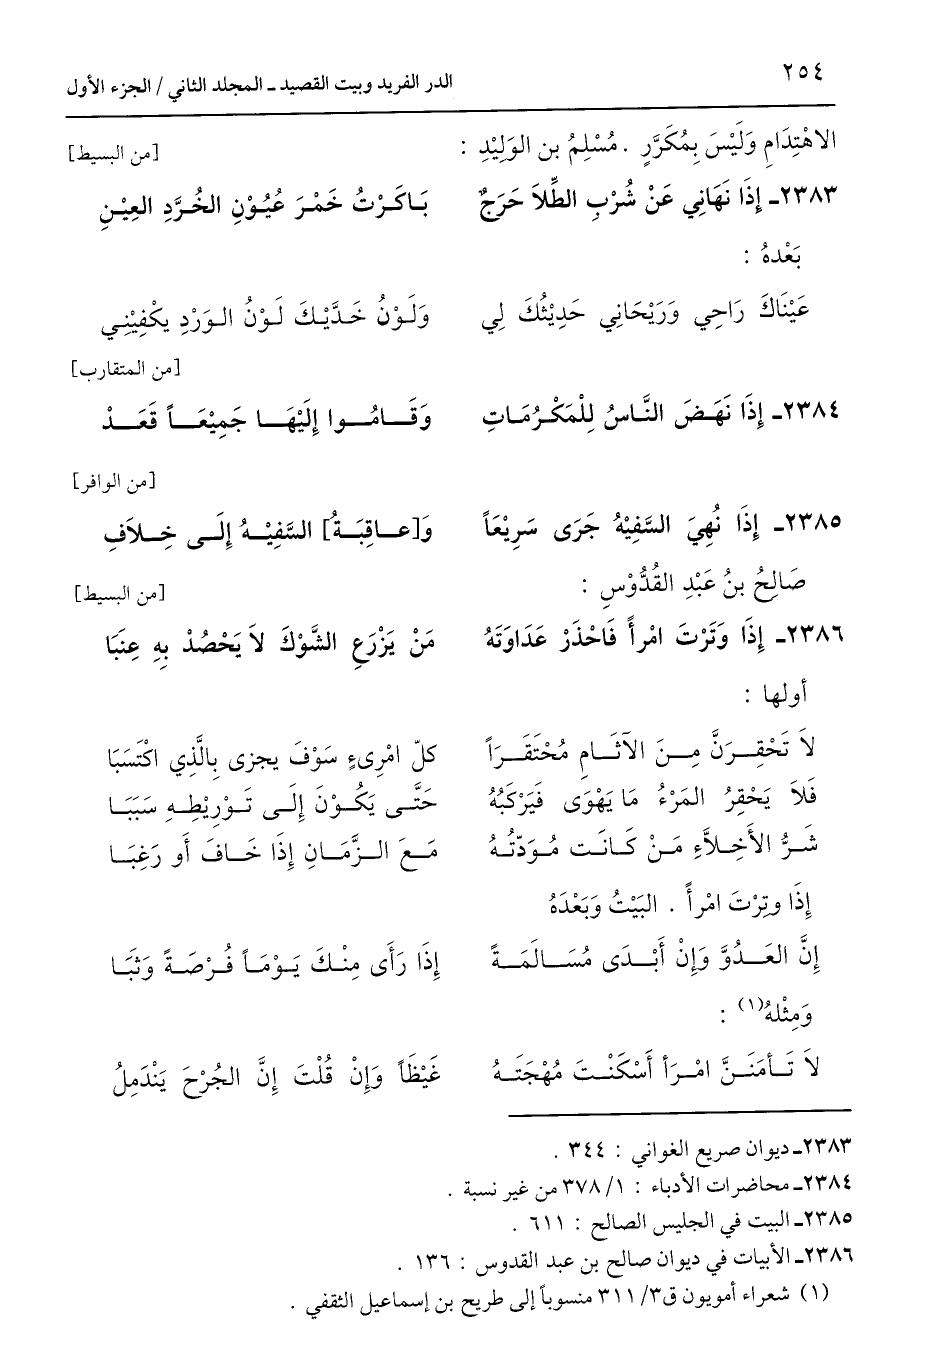 ٢٥٤
الدر الفريد وبيت القصيد ـ المجلد الثاني / الجزء الأول
الاهْتِدَامِ وَلَيْسَ بِمُكَرَّرٍ . مُسْلِمُ بن الوَلِيْدِ : [من البسيط]
٢٣٨٣ـ إِذَا نَهَانِي عَنْ شُرْبِ الطِّلاَ حَرَجٌ بَاكَرْتُ خَمْرَ عُيُوْنِ الخُرَّدِ العِيْنِ
بَعْدهُ :
عَيْنَاكَ رَاحِي وَرَيْحَانِي حَدِيْثُكَ لِي وَلَوْنُ خَدَّيْكَ لَوْنُ الوَرْدِ يكْفِيْنِي
[من المتقارب]
٢٣٨٤ـ إِذَا نَهَضَ النَّاسُ لِلْمَكْرُمَاتِ وَقَامُوا إِلَيْهَا جَمِيْعَاً قَعَدْ
[من الوافر]
٢٣٨٥ـ إِذَا نُهِيَ السَّفِيْهُ جَرَى سَرِيْعَاً وَ[عاقِبَةُ] السَّفِيْهِ إِلَى خِلاَفِ
صَالِحُ بنُ عَبْدِ القُدُّوْسِ : [من البسيط]
٢٣٨٦ـ إِذَا وَتَرْتَ امْرأً فَاحْذَرْ عَدَاوَتَهُ مَنْ يَزْرَعِ الشَّوْكَ لاَ يَحْصُدْ بِهِ عِنَبَا
أولها :
لاَ تَحْقِرَنَّ مِنَ الآثَامِ مُحْتَقَرَاً كلّ امْرِىءٍ سَوْفَ يجزى بِالَّذِي اكْتَسَبَا
فَلاَ يَحْقِرُ المَرْءُ مَا يَهْوَى فَيَرْكَبُهُ حَتَّى يَكُوْنَ إِلَى تَوْرِيْطِهِ سَبَبَا
شَرُّ الأَخِلاَّءِ مَنْ كَانَت مُودّتُهُ مَعَ الزَّمَانِ إِذَا خَافَ أو رَغِبَا
إِذَا وتِرْتَ امْرأً . البَيْتُ وَبَعْدَهُ
إِنَّ العَدُوَّ وَإِنْ أَبْدَى مُسَالَمَةً إِذَا رَأَى مِنْكَ يَوْمَاً فُرْصَةً وَثَبَا
وَمِثْلهُ(١) :
لاَ تَأمَنَنَّ امْرَأ أَسْكَنْتَ مُهْجَتَهُ غَيْظَاً وَإِنْ قُلْتَ إِنَّ الجُرْحَ يَنْدَمِلُ
٢٣٨٣ـ ديوان صريع الغواني : ٣٤٤ .
٢٣٨٤ـ محاضرات الأدباء : ١/ ٣٧٨ من غير نسبة .
٢٣٨٥ـ البيت في الجليس الصالح : ٦١١ .
٢٣٨٦ـ الأبيات في ديوان صالح بن عبد القدوس : ١٣٦ .
(١) شعراء أمويون ق٣/ ٣١١ منسوباً إلى طريح بن إسماعيل الثقفي .